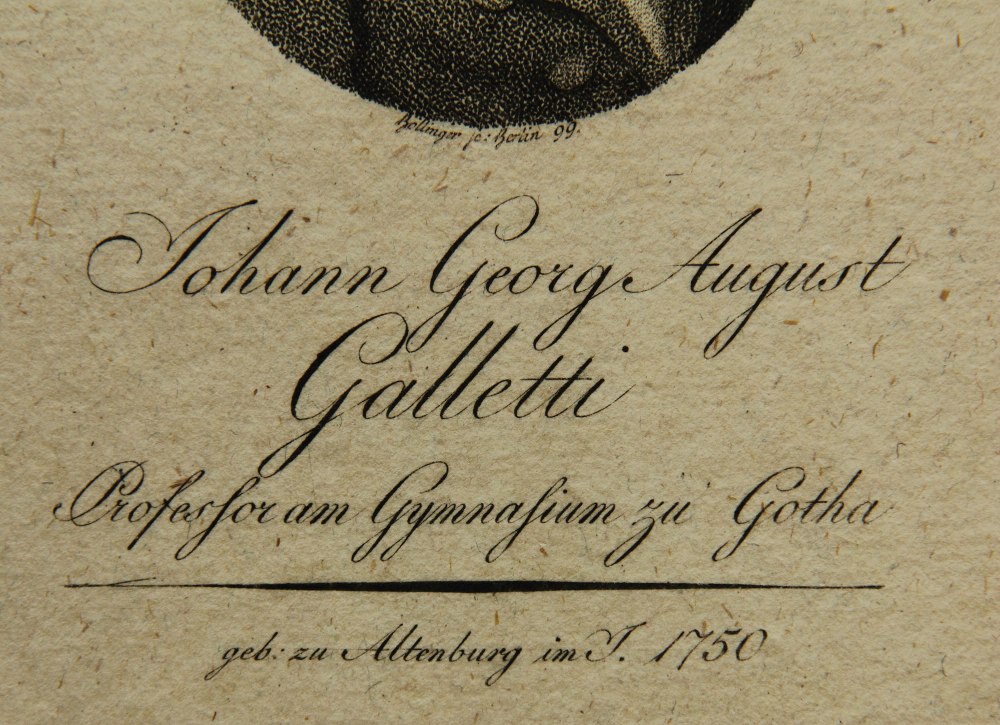 Bollinger sc: Berlin 99.
Johann Georg August
Galletti
Profesſor am Gymnaſium zu Gotha
geb: zu Altenburg im J. 1750